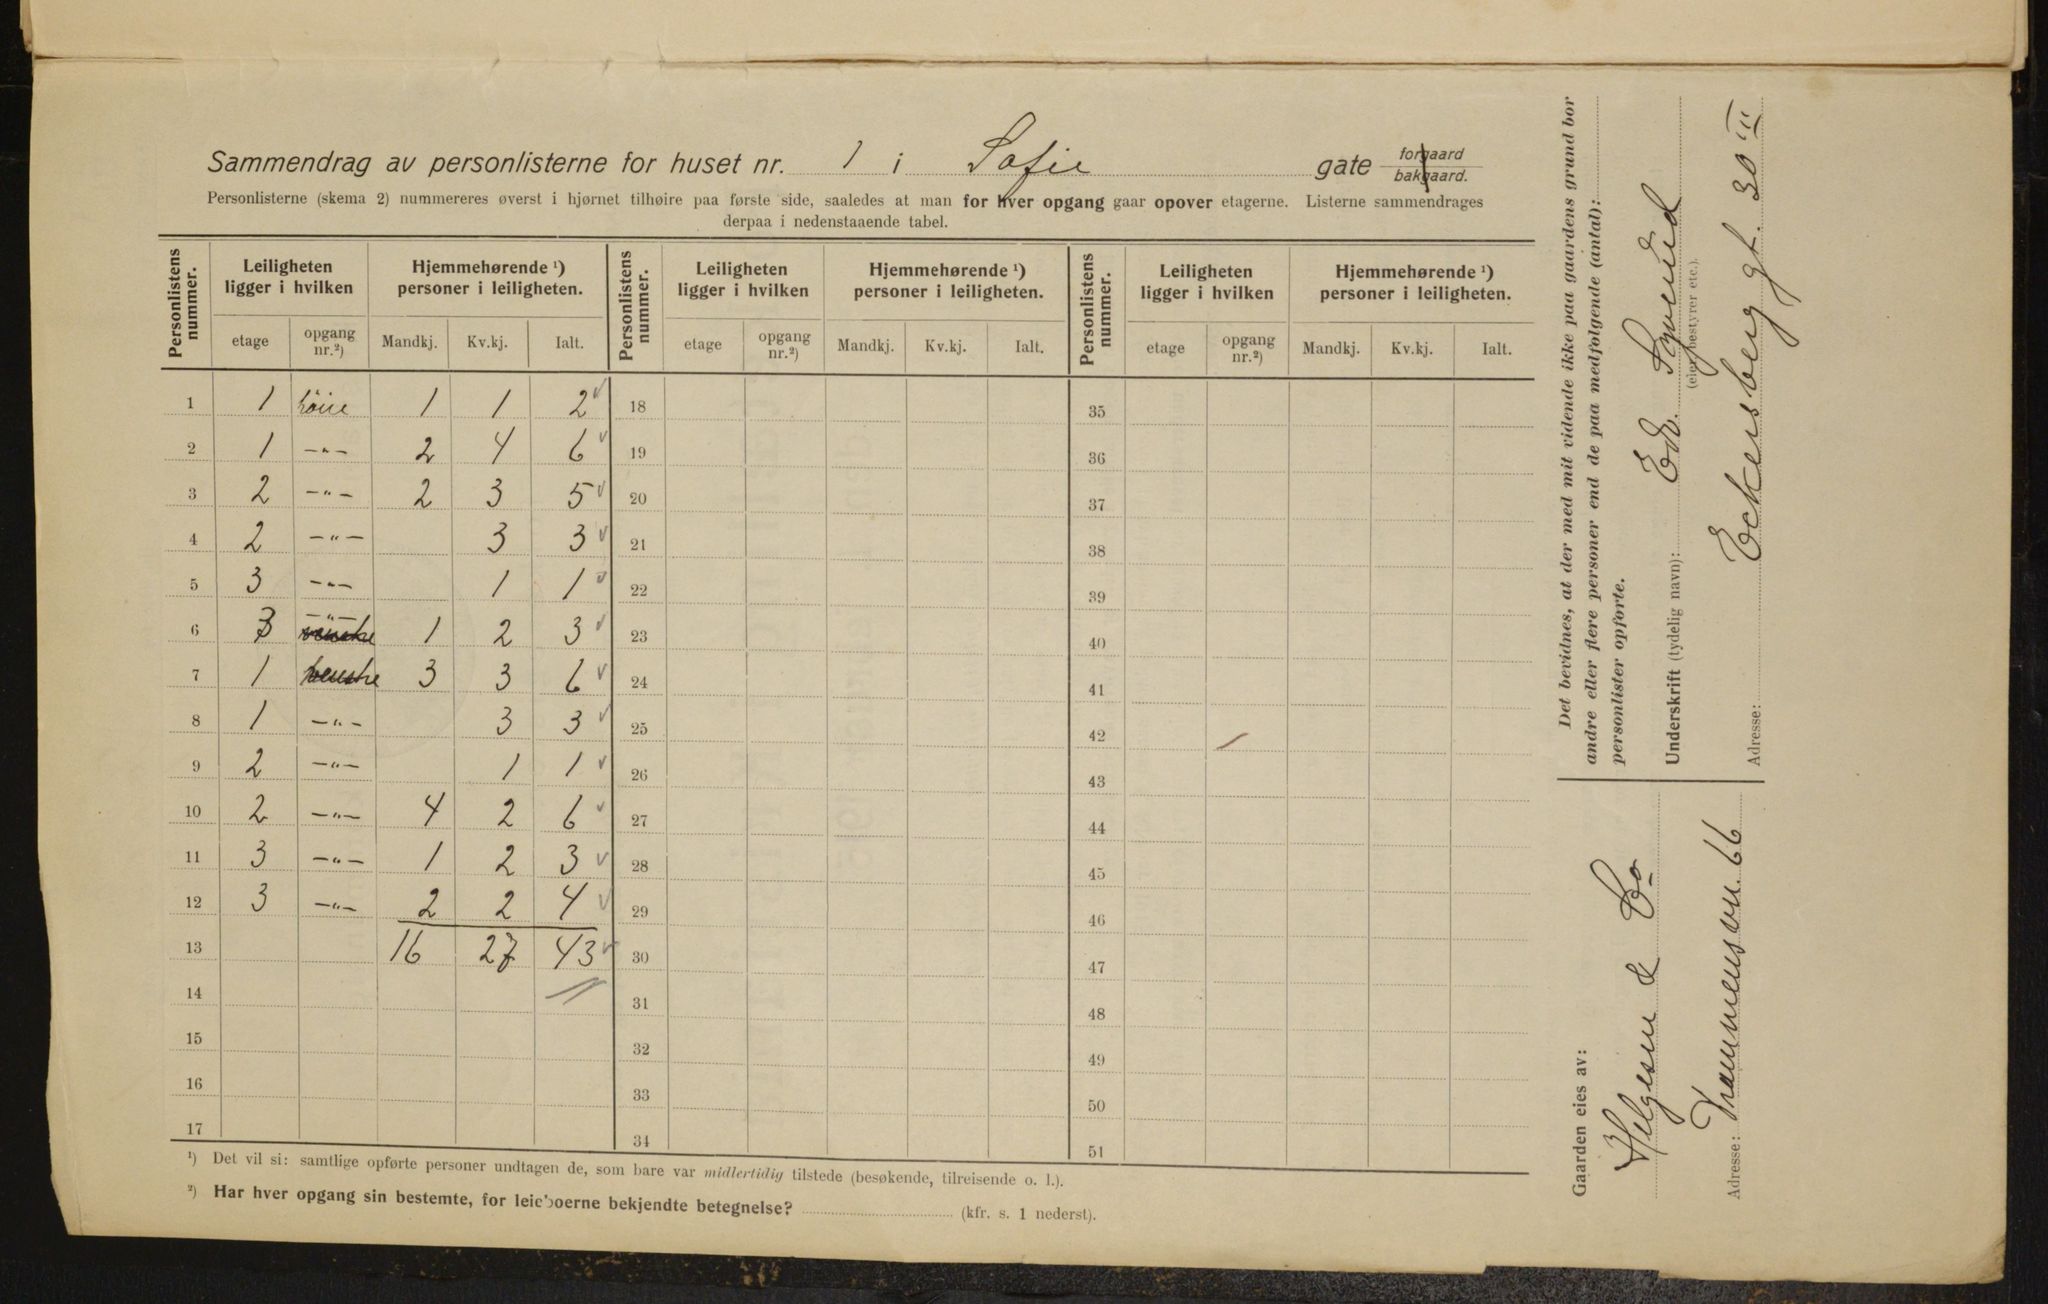 Sammendrag av personlisterne for huset nr. 1 i Sofie gate forgaard bakgaard.
Personlisterne (skema 2) nummereres øverst i hjørnet tilhøire paa første side, saaledes at man for hver opgang gaar opover etagerne. Listerne sammendrages
derpaa i nedenstaaende tabel.
Personlistens nummer. Leiligheten ligger i hvilken Hjemmehørende ¹) personer i leiligheten. Personlistens nummer. Leiligheten ligger i hvilken Hjemmehørende ¹) personer i leiligheten. Personlistens nummer. Leiligheten ligger i hvilken Hjemmehørende ¹) personer i leiligheten.
etage opgang nr.²) Mandkj. Kv.kj. Ialt. etage opgang nr.²) Mandkj. Kv.kj. Ialt. etage opgang nr.²) Mandkj. Kv.kj. Ialt.
1 1 høire 1 1 2 18 35
2 1 -"- 2 4 6 19 36
3 2 -"- 2 3 5 20 37
4 2 -"- 3 3 21 38
5 3 -"- 1 1 22 39
6 3 -"- venstre 1 2 3 23 40
7 1 venstre 3 3 6 24 41
8 1 -"- 3 3 25 42
9 2 -"- 1 1 26 43
10 2 -"- 4 2 6 27 44
11 3 -"- 1 2 3 28 45
12 3 -"- 2 2 4 29 46
13 16 27 43 30 47
14 31 48
15 32 49
16 33 50
17 34 51
¹) Det vil si: samtlige opførte personer undtagen de, som bare var midlertidig tilstede (besøkende, tilreisende o. l.).
²) Har hver opgang sin bestemte, for leieboerne bekjendte betegnelse? (kfr. s. 1 nederst).
Det bevidnes, at der med mit vidende ikke paa gaardens grund bor
andre eller flere personer end de paa medfølgende (antal):
personlister opførte.
Underskrift (tydelig navn): Edv.
(eier, bestyrer etc.).
Adresse: Eckersberg gt. 30 III
Gaarden eies av:
Helgesen & Co
Adresse: 66